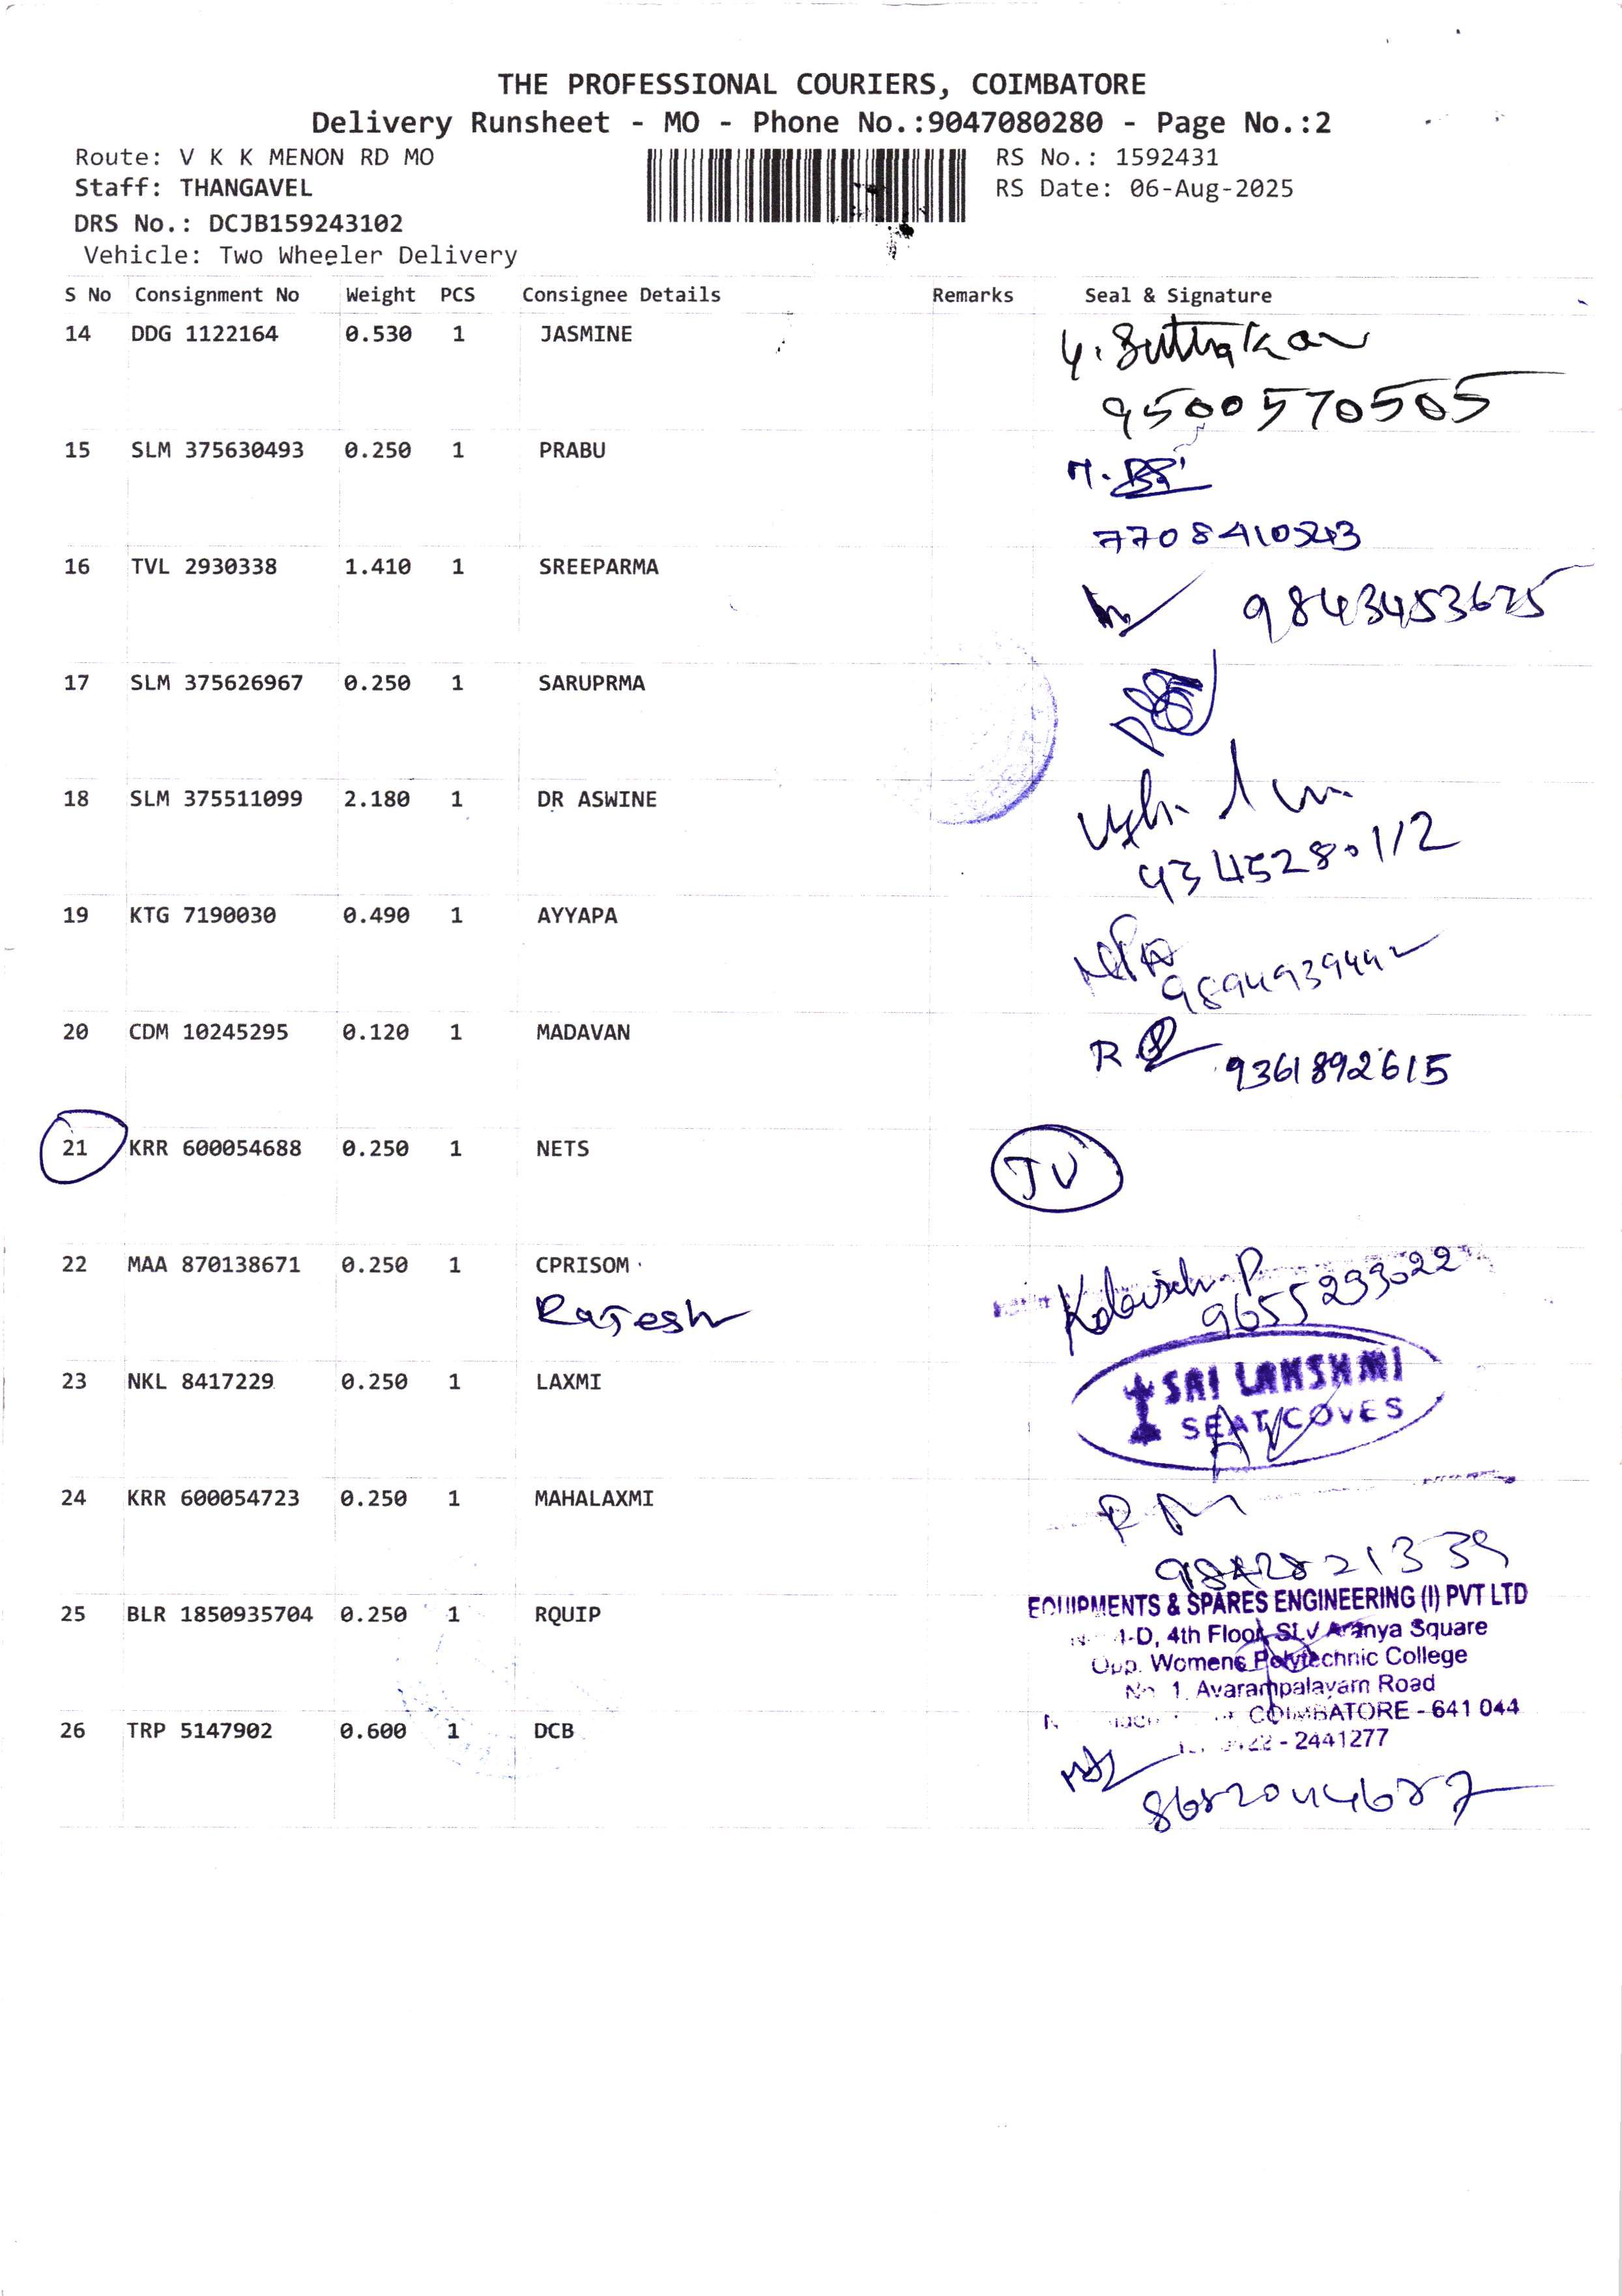 THE PROFESSIONAL COURIERS, COIMBATORE
Delivery Runsheet - MO - Phone No.:9047080280 - Page No.:2
Route: V K K MENON RD MO
RS No.: 1592431
Staff: THANGAVEL
RS Date: 06-Aug-2025
DRS No.: DCJB159243102
Vehicle: Two Wheeler Delivery
S No Consignment No Weight PCS Consignee Details Remarks Seal & Signature
14 DDG 1122164 0.530 1 JASMINE
9500570505
15 SLM 375630493 0.250 1 PRABU
16 TVL 2930338 1.410 1 SREEPARMA
9843453675
17 SLM 375626967 0.250 1 SARUPRMA
18 SLM 375511099 2.180 1 DR ASWINE
9345280112
19 KTG 7190030 0.490 1 AYYAPA
20 CDM 10245295 0.120 1 MADAVAN
9361892615
21 KRR 600054688 0.250 1 NETS
22 MAA 870138671 0.250 1 CPRISOM
Rajesh
9655293022
23 NKL 8417229 0.250 1 LAXMI
SRI LAKSHMI
SEAT COVES
24 KRR 600054723 0.250 1 MAHALAXMI
25 BLR 1850935704 0.250 1 RQUIP
EQUIPMENTS & SPARES ENGINEERING (I) PVT LTD
1-D, 4th Floor, SLV Aranya Square
Opp. Womens Polytechnic College
No 1, Avarampalayam Road
COIMBATORE - 641 044
- 2441277
26 TRP 5147902 0.600 1 DCB